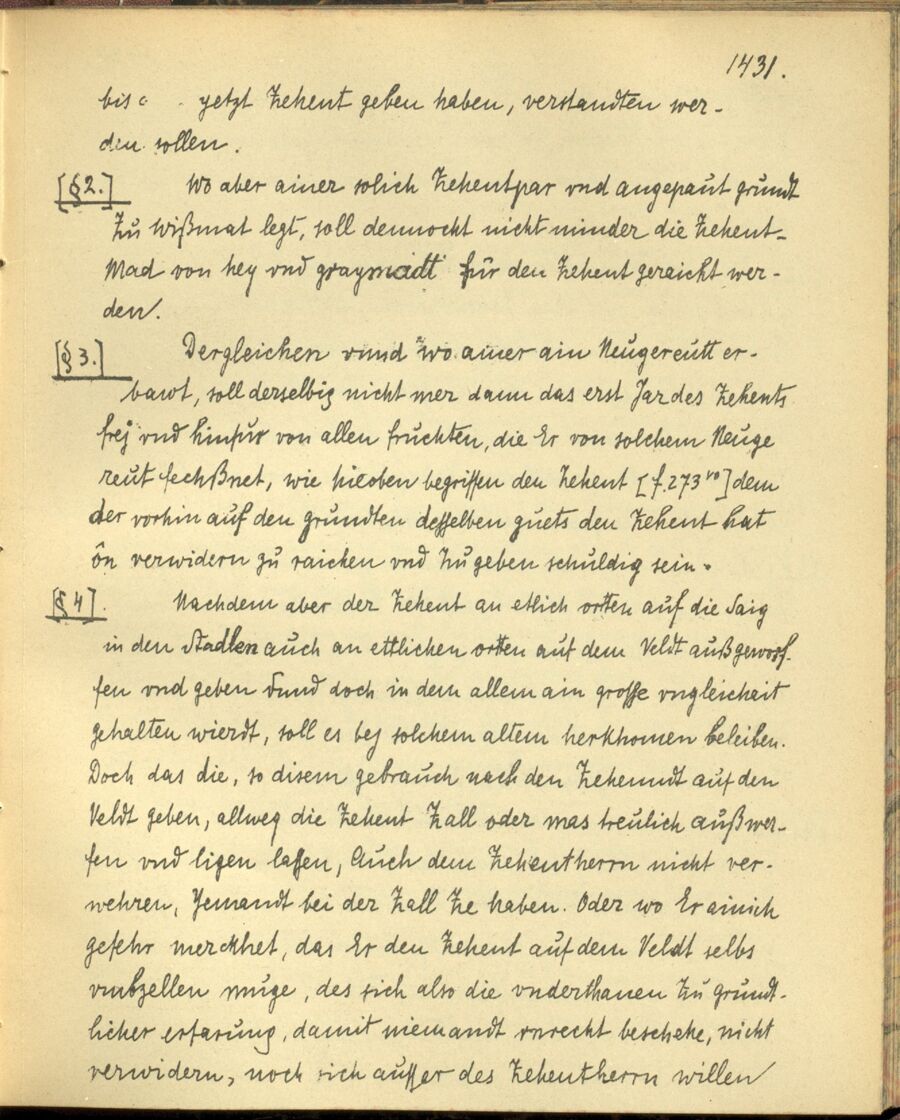 1431.
bis yetzt Zehent geben haben, verstandten wer-
den sollen.
[§2.] Wo aber ainer solich Zehentpar vnd angepaut grundt
Zu Wißmat legt, soll dennocht nicht minder die Zehent-
Mad von hey vnd graymadt für den Zehent geraicht wer-
den.
[§3.] Dergleichen vnnd wo ainer ain Neugereutt er-
bawt, soll derselbig nicht mer dann das erst Jar des Zehents
frej vnd hinfur von allen fruchten, die Er von solchem Neuge
reut fechßnet, wie hieoben begriffen den Zehent [f. 273vo] dem
der vorhin auf den grundten desselben guets den Zehent hat
ôn verwidern zu raichen vnd Zu geben schuldig sein.
[§4]. Nachdem aber der Zehent an etlich ortten auf die Saig
in den Stadlen auch an ettlichen ortten auf dem Veldt außgeworf-
fen vnd geben vund doch in dem allem ain grosse vngleichait
gehalten wierdt, soll es bej solchem altem herkhomen beleiben.
Doch das die, so disem gebrauch nach den Zehenndt auf den
Veldt geben, allweg die Zehent Zall oder mas treulich außwer-
fen vnd ligen lassen, Auch dem Zehentherrn nicht ver-
wehren, Yemandt bei der Zall Ze haben. Oder wo Er ainich
gefehr merckhet, das Er den Zehent auf dem Veldt selbs
vmbzellen muge, des sich also die vnderthanen Zu grundt-
licher erfarung, damit niemandt vnrecht beschehe, nicht
verwidern, noch sich ausser des Zehentherrn willen